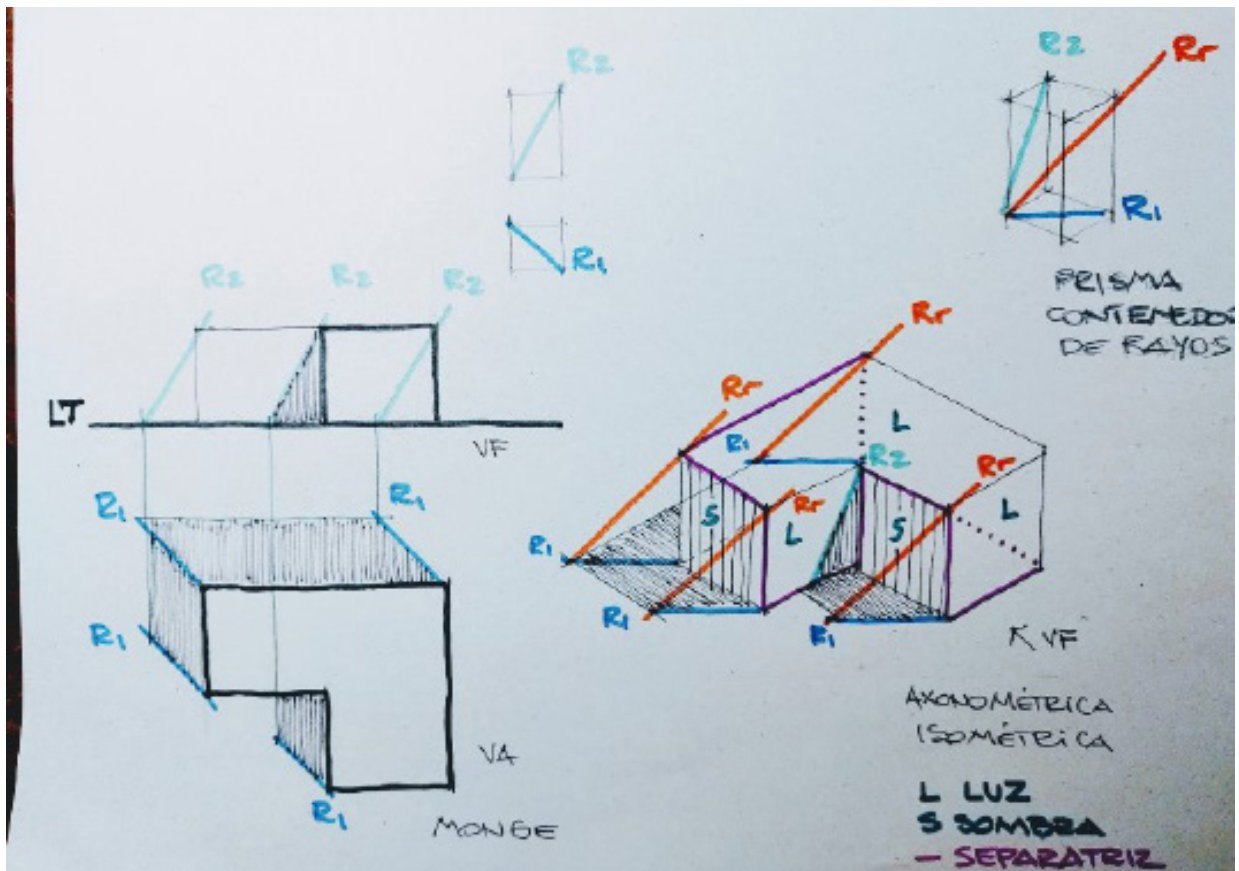 R2
R1
R2
Rr
R1
PRISMA
CONTENEDOR
DE RAYOS
R2
R2
R2
LT
VF
R1
R1
R1
R1
VA
MONGE
Rr
Rr
R1
L
R2
Rr
Rr
S
L
S
L
R1
R1
R1
VF
AXONOMÉTRICA
ISOMÉTRICA
L LUZ
S SOMBRA
— SEPARATRIZ